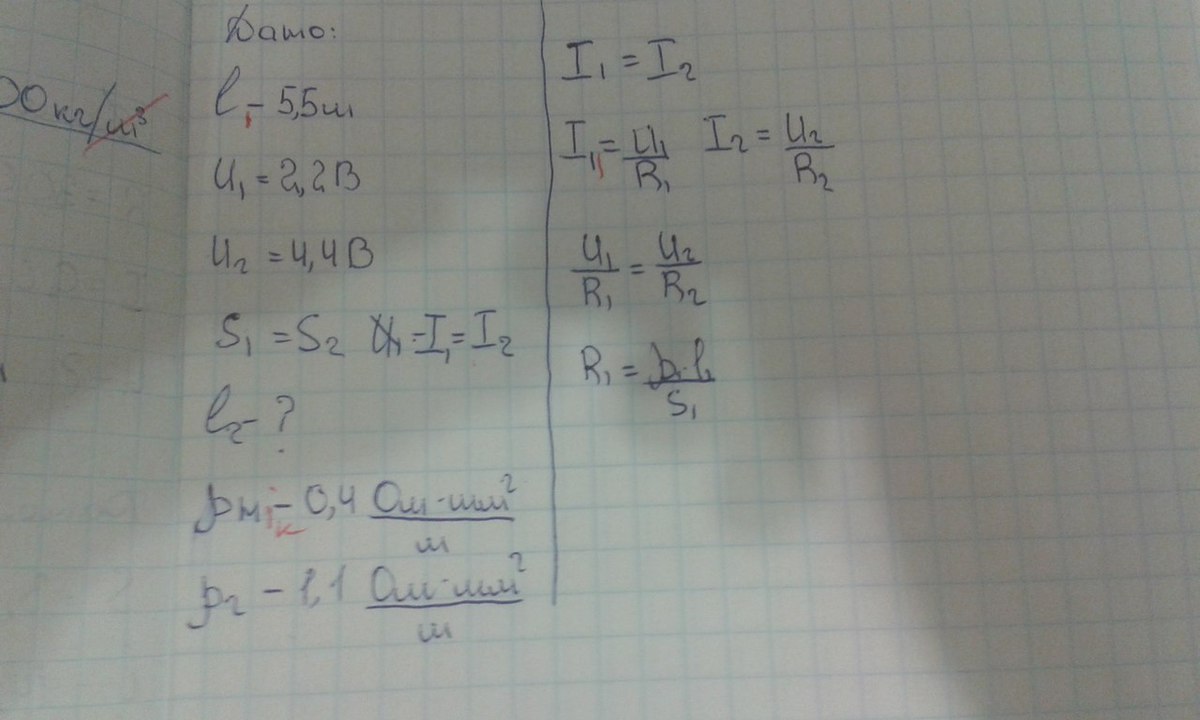 Дано:
00кг/м³
l₁ – 5,5м
U₁ = 2,2В
U₂ = 4,4В
S₁ = S₂ I₁ = I₂
l₂ – ?
ρн₁ – 0,4 Ом·мм²/м
к
ρ₂ – 1,1 Ом·мм²/м
I₁ = I₂
I₁ = U₁/R₁ I₂ = U₂/R₂
U₁/R₁ = U₂/R₂
R₁ = ρ₁·l₁/S₁